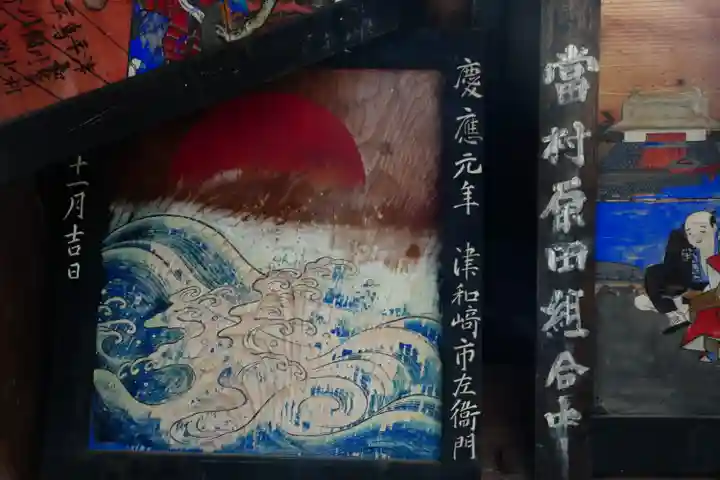 當村原田組合中
慶應元年 津和﨑市左衞門
十一月吉日